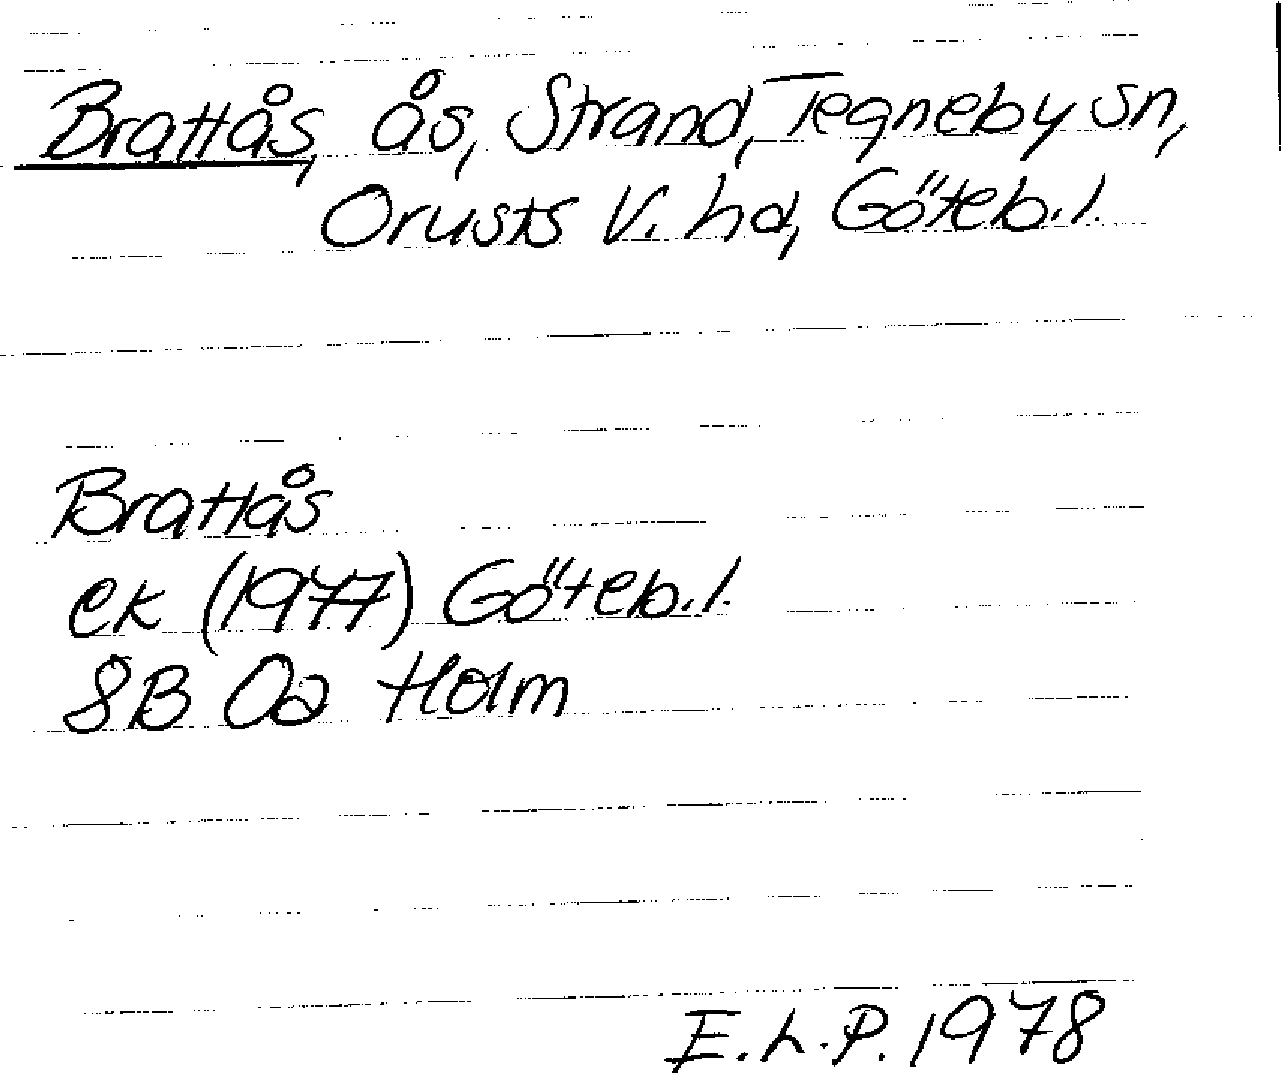 Brattås, ås, Strand, Tegneby sn,
Orusts V. hd, Göteb. l.
Brattås
ek (1977) Göteb. l.
8B 0a Holm
E. L. P. 1978